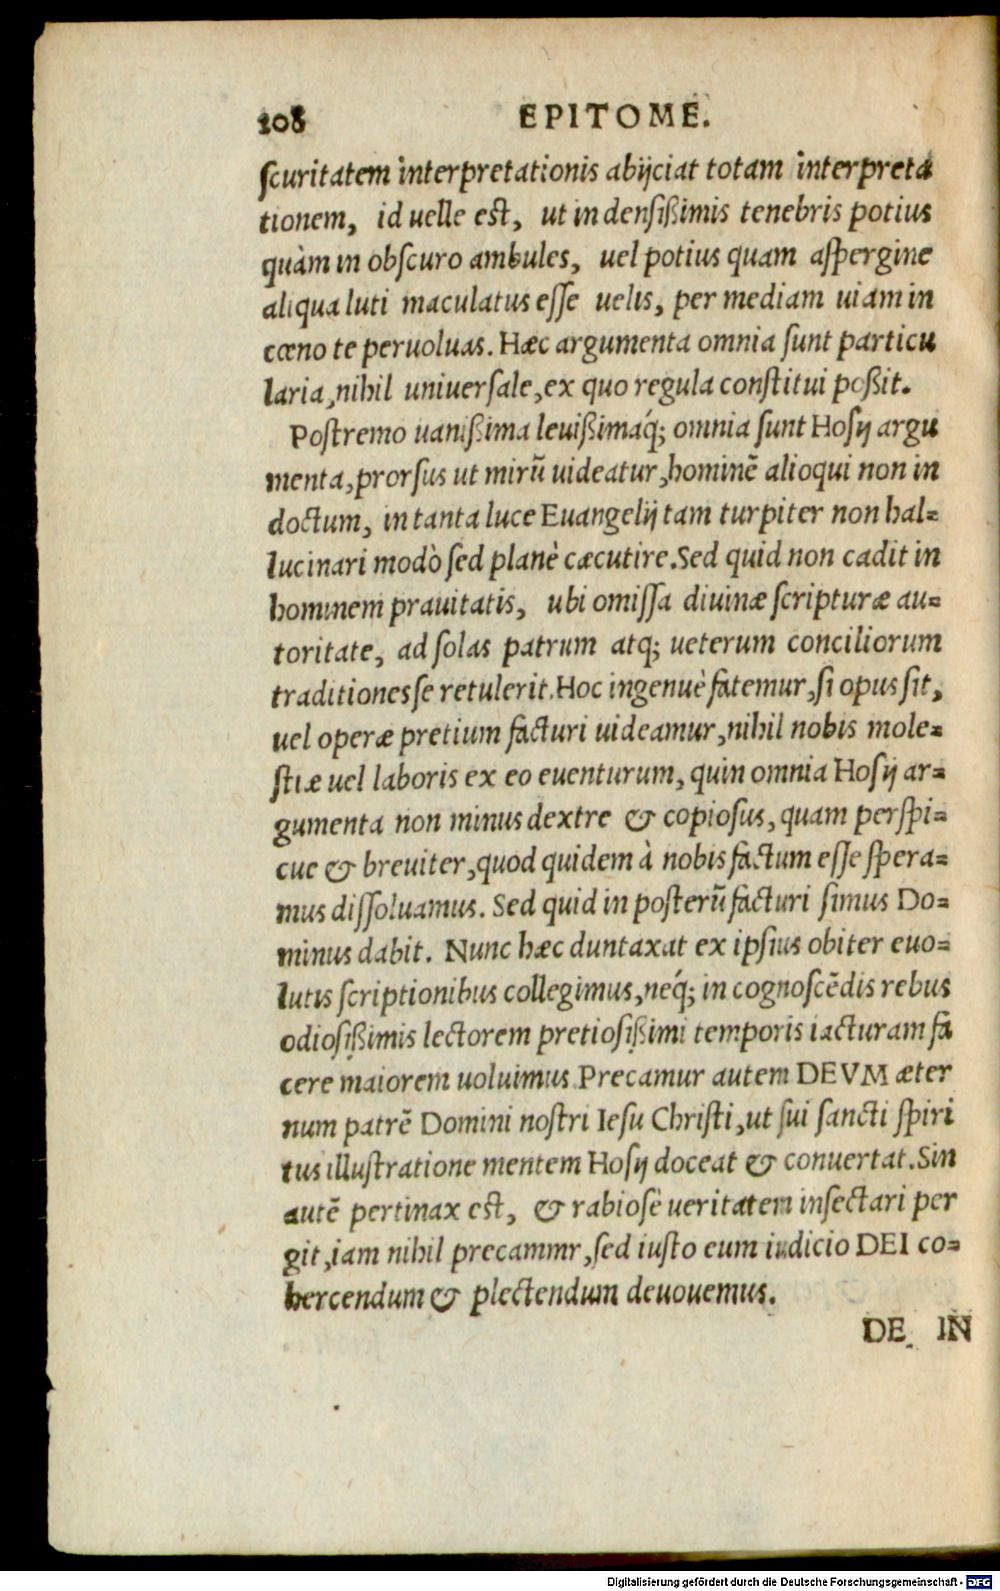 208 EPITOME.
scuritatem interpretationis abijciat totam interpreta
tionem, id uelle est, ut in densißimis tenebris potius
quàm in obscuro ambules, uel potius quam aspergine
aliqua luti maculatus esse uelis, per mediam uiam in
cœno te peruoluas. Hæc argumenta omnia sunt particu
laria, nihil uniuersale, ex quo regula constitui poßit.
Postremo uanißima leuißimaq́; omnia sunt Hosij argu
menta, prorsus ut mirũ uideatur, hominẽ alioqui non in
doctum, in tanta luce Euangelij tam turpiter non hal=
lucinari modò sed planè cæcutire. Sed quid non cadit in
hominem prauitatis, ubi omissa diuinæ scripturæ au=
toritate, ad solas patrum atq; ueterum conciliorum
traditiones se retulerit. Hoc ingenuè fatemur, si opus sit,
uel operæ pretium facturi uideamur, nihil nobis mole=
stiæ uel laboris ex eo euenturum, quin omnia Hosij ar=
gumenta non minus dextre & copiosus, quam perspi=
cue & breuiter, quod quidem à nobis factum esse spera=
mus dissoluamus. Sed quid in posterũ facturi simus Do=
minus dabit. Nunc hæc duntaxat ex ipsius obiter euo=
lutis scriptionibus collegimus, neq́; in cognoscẽdis rebus
odiosißimis lectorem pretiosißimi temporis iacturam fa
cere maiorem uoluimus. Precamur autem DEVM æter
num patrẽ Domini nostri Iesu Christi, ut sui sancti spiri
tus illustratione mentem Hosij doceat & conuertat. Sin
autẽ pertinax est, & rabiosè ueritatem insectari per
git, iam nihil precammr, sed iusto eum iudicio DEI co=
hercendum & plectendum deuouemus.
DE IN
Digitalisierung gefördert durch die Deutsche Forschungsgemeinschaft - DFG